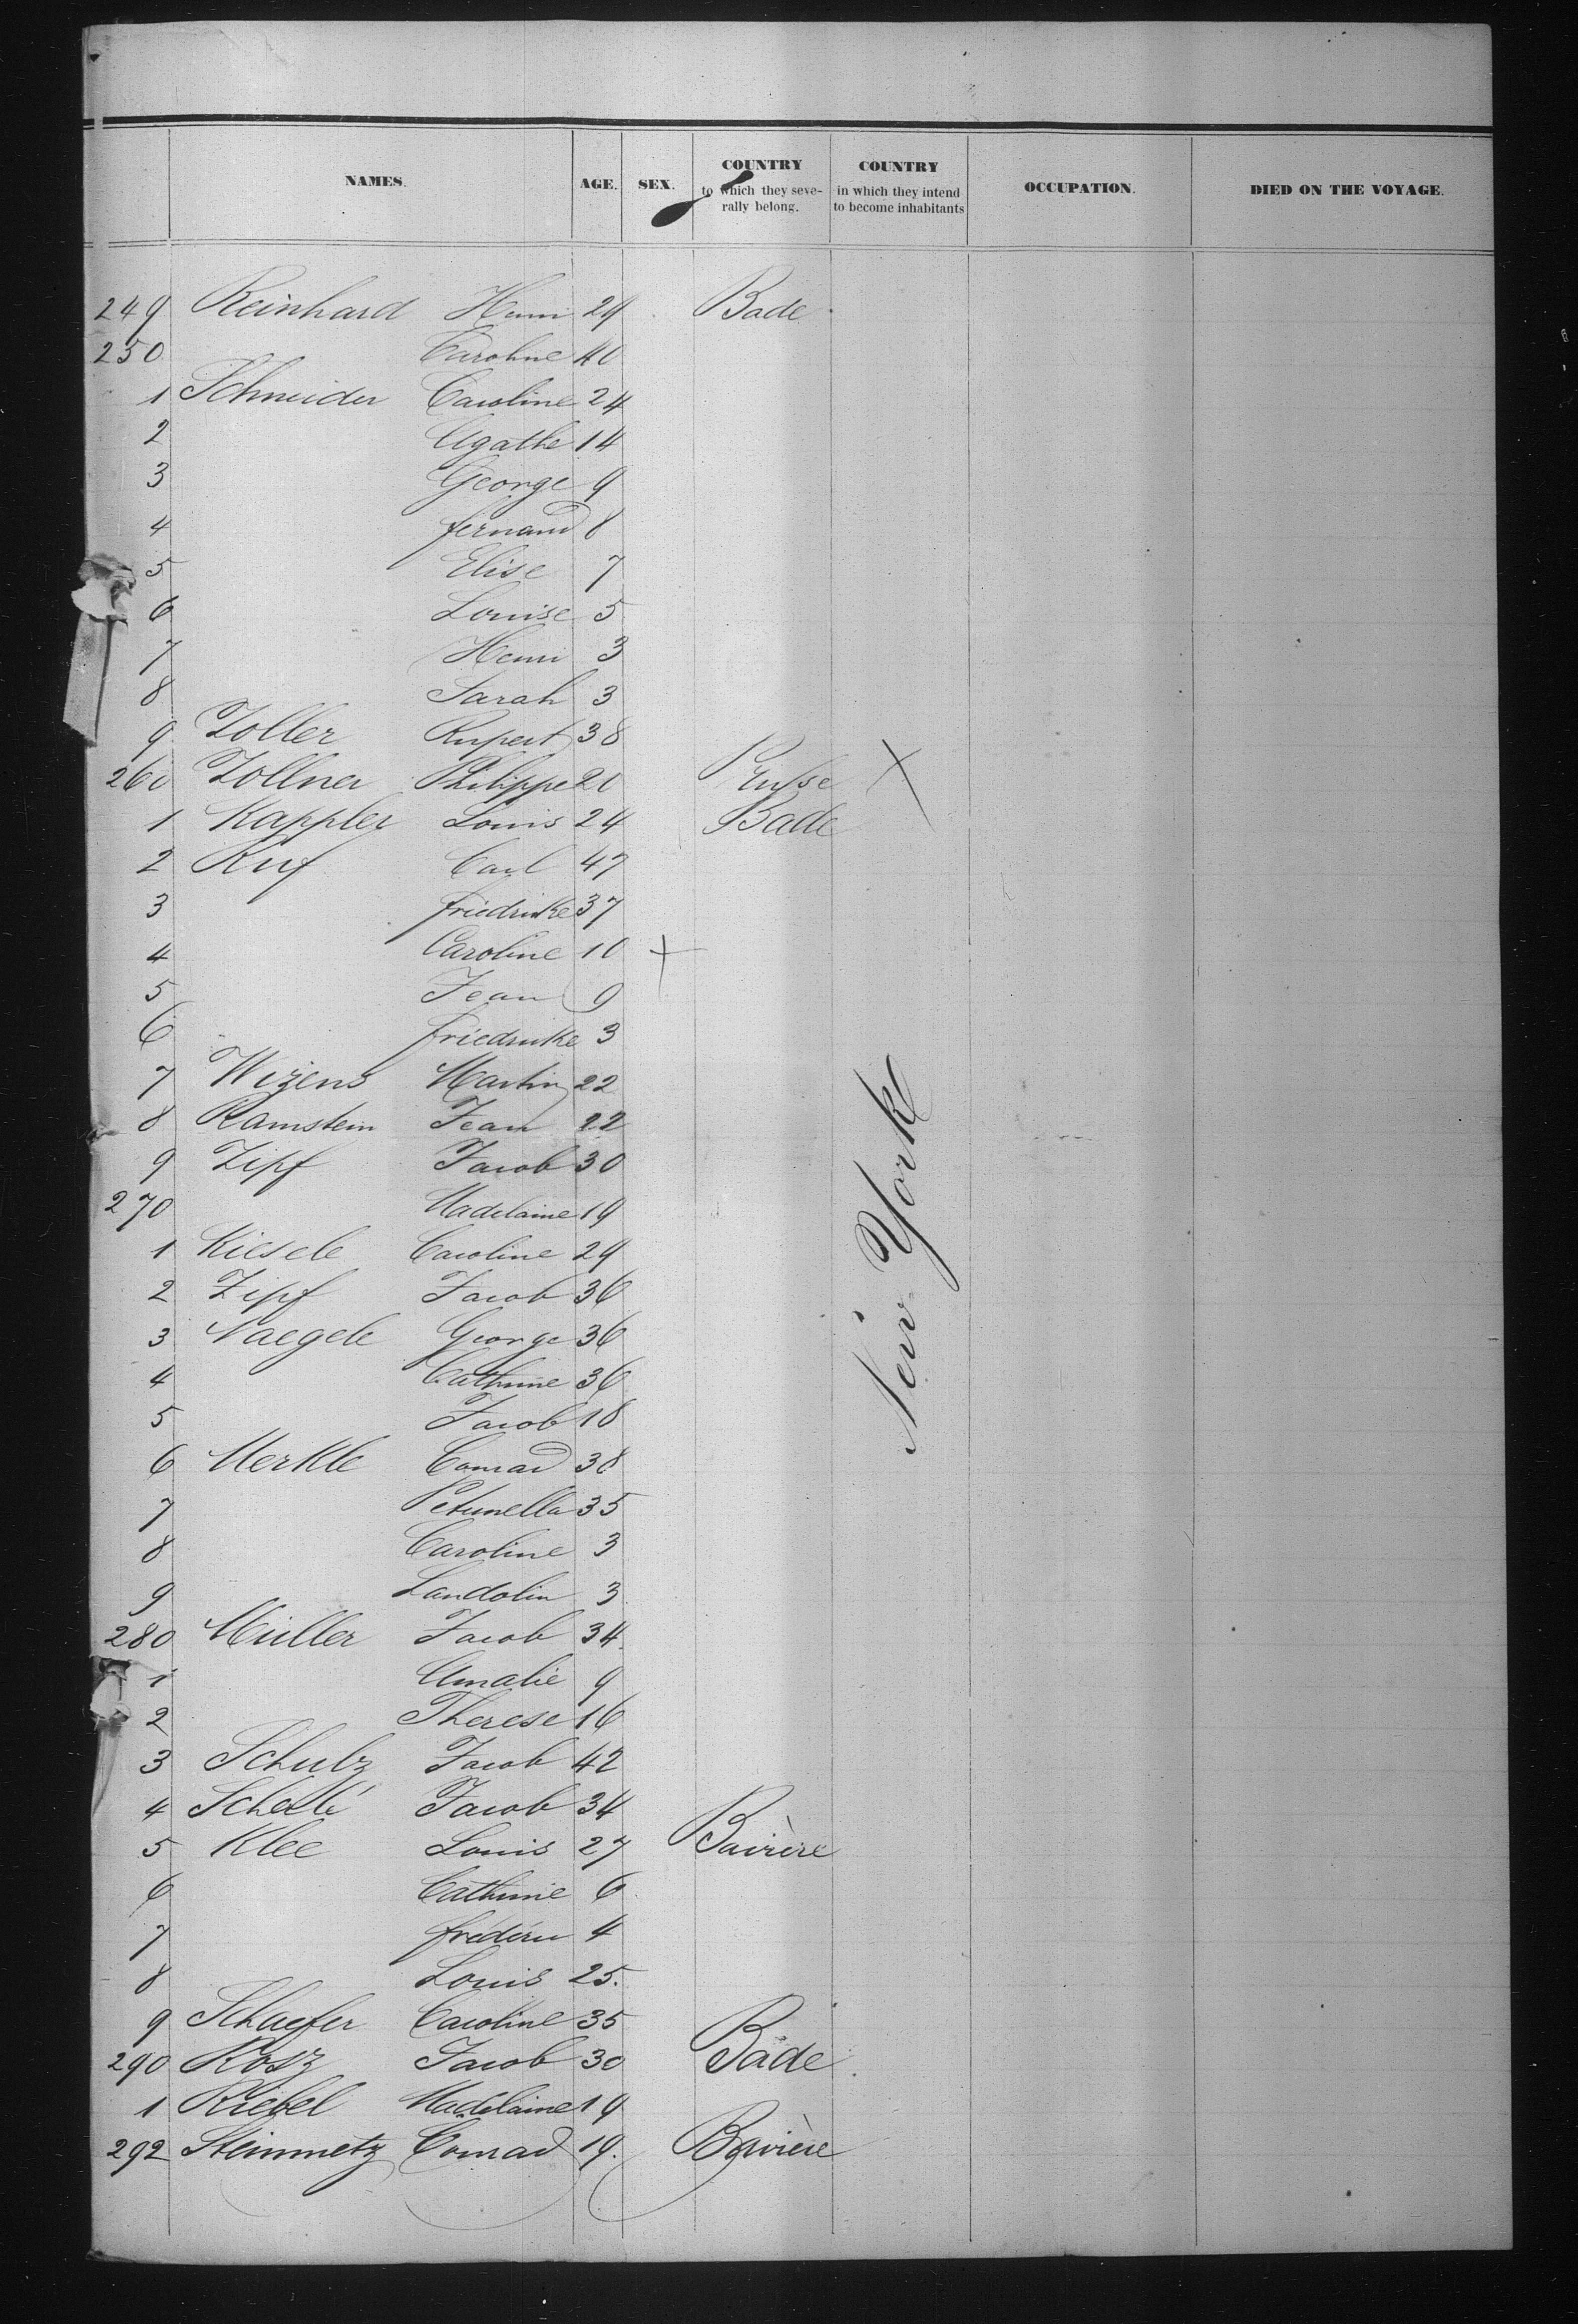 NAMES. AGE. SEX. COUNTRY to which they severally belong. COUNTRY in which they intend to become inhabitants OCCUPATION. DIED ON THE VOYAGE.
249 Reinhard Henri 29 Bade
250 Caroline 40
1 Schneider Caroline 24
2 Agathe 14
3 George 9
4 fernand 8
5 Elise 7
6 Louise 5
7 Henri 3
8 Sarah 3
9 Zoller Rupert 38
260 Zollner Philippe 20 Prusse X
1 Kappler Louis 24 Bade
2 Ruf Carl 47
3 friedrike 37
4 Caroline 10 +
5 Jean 9
6 friedrike 3
7 Wizens Martin 22
8 Ramstein Jean 22
9 Zipf Jacob 30
270 Madelaine 19
1 Kiesele Caroline 29
2 Zipf Jacob 36
3 Naegele George 36
4 Catherine 36
5 Jacob 18
6 Merkle Conrad 38
7 Petronella 35
8 Caroline 3
9 Landolin 3
280 Müller Jacob 34
1 Amalie 9
2 Therese 16
3 Schulz Jacob 42
4 Jacob 34
5 Klee Louis 27 Bavière
6 Catherine 6
7 4
8 Louis 25.
9 Schaefer Caroline 35
290 Rosz Jacob 30 Bade
1 Riebel Madelaine 19
292 Steinmetz Conrad 19. Bavière
New Yorke